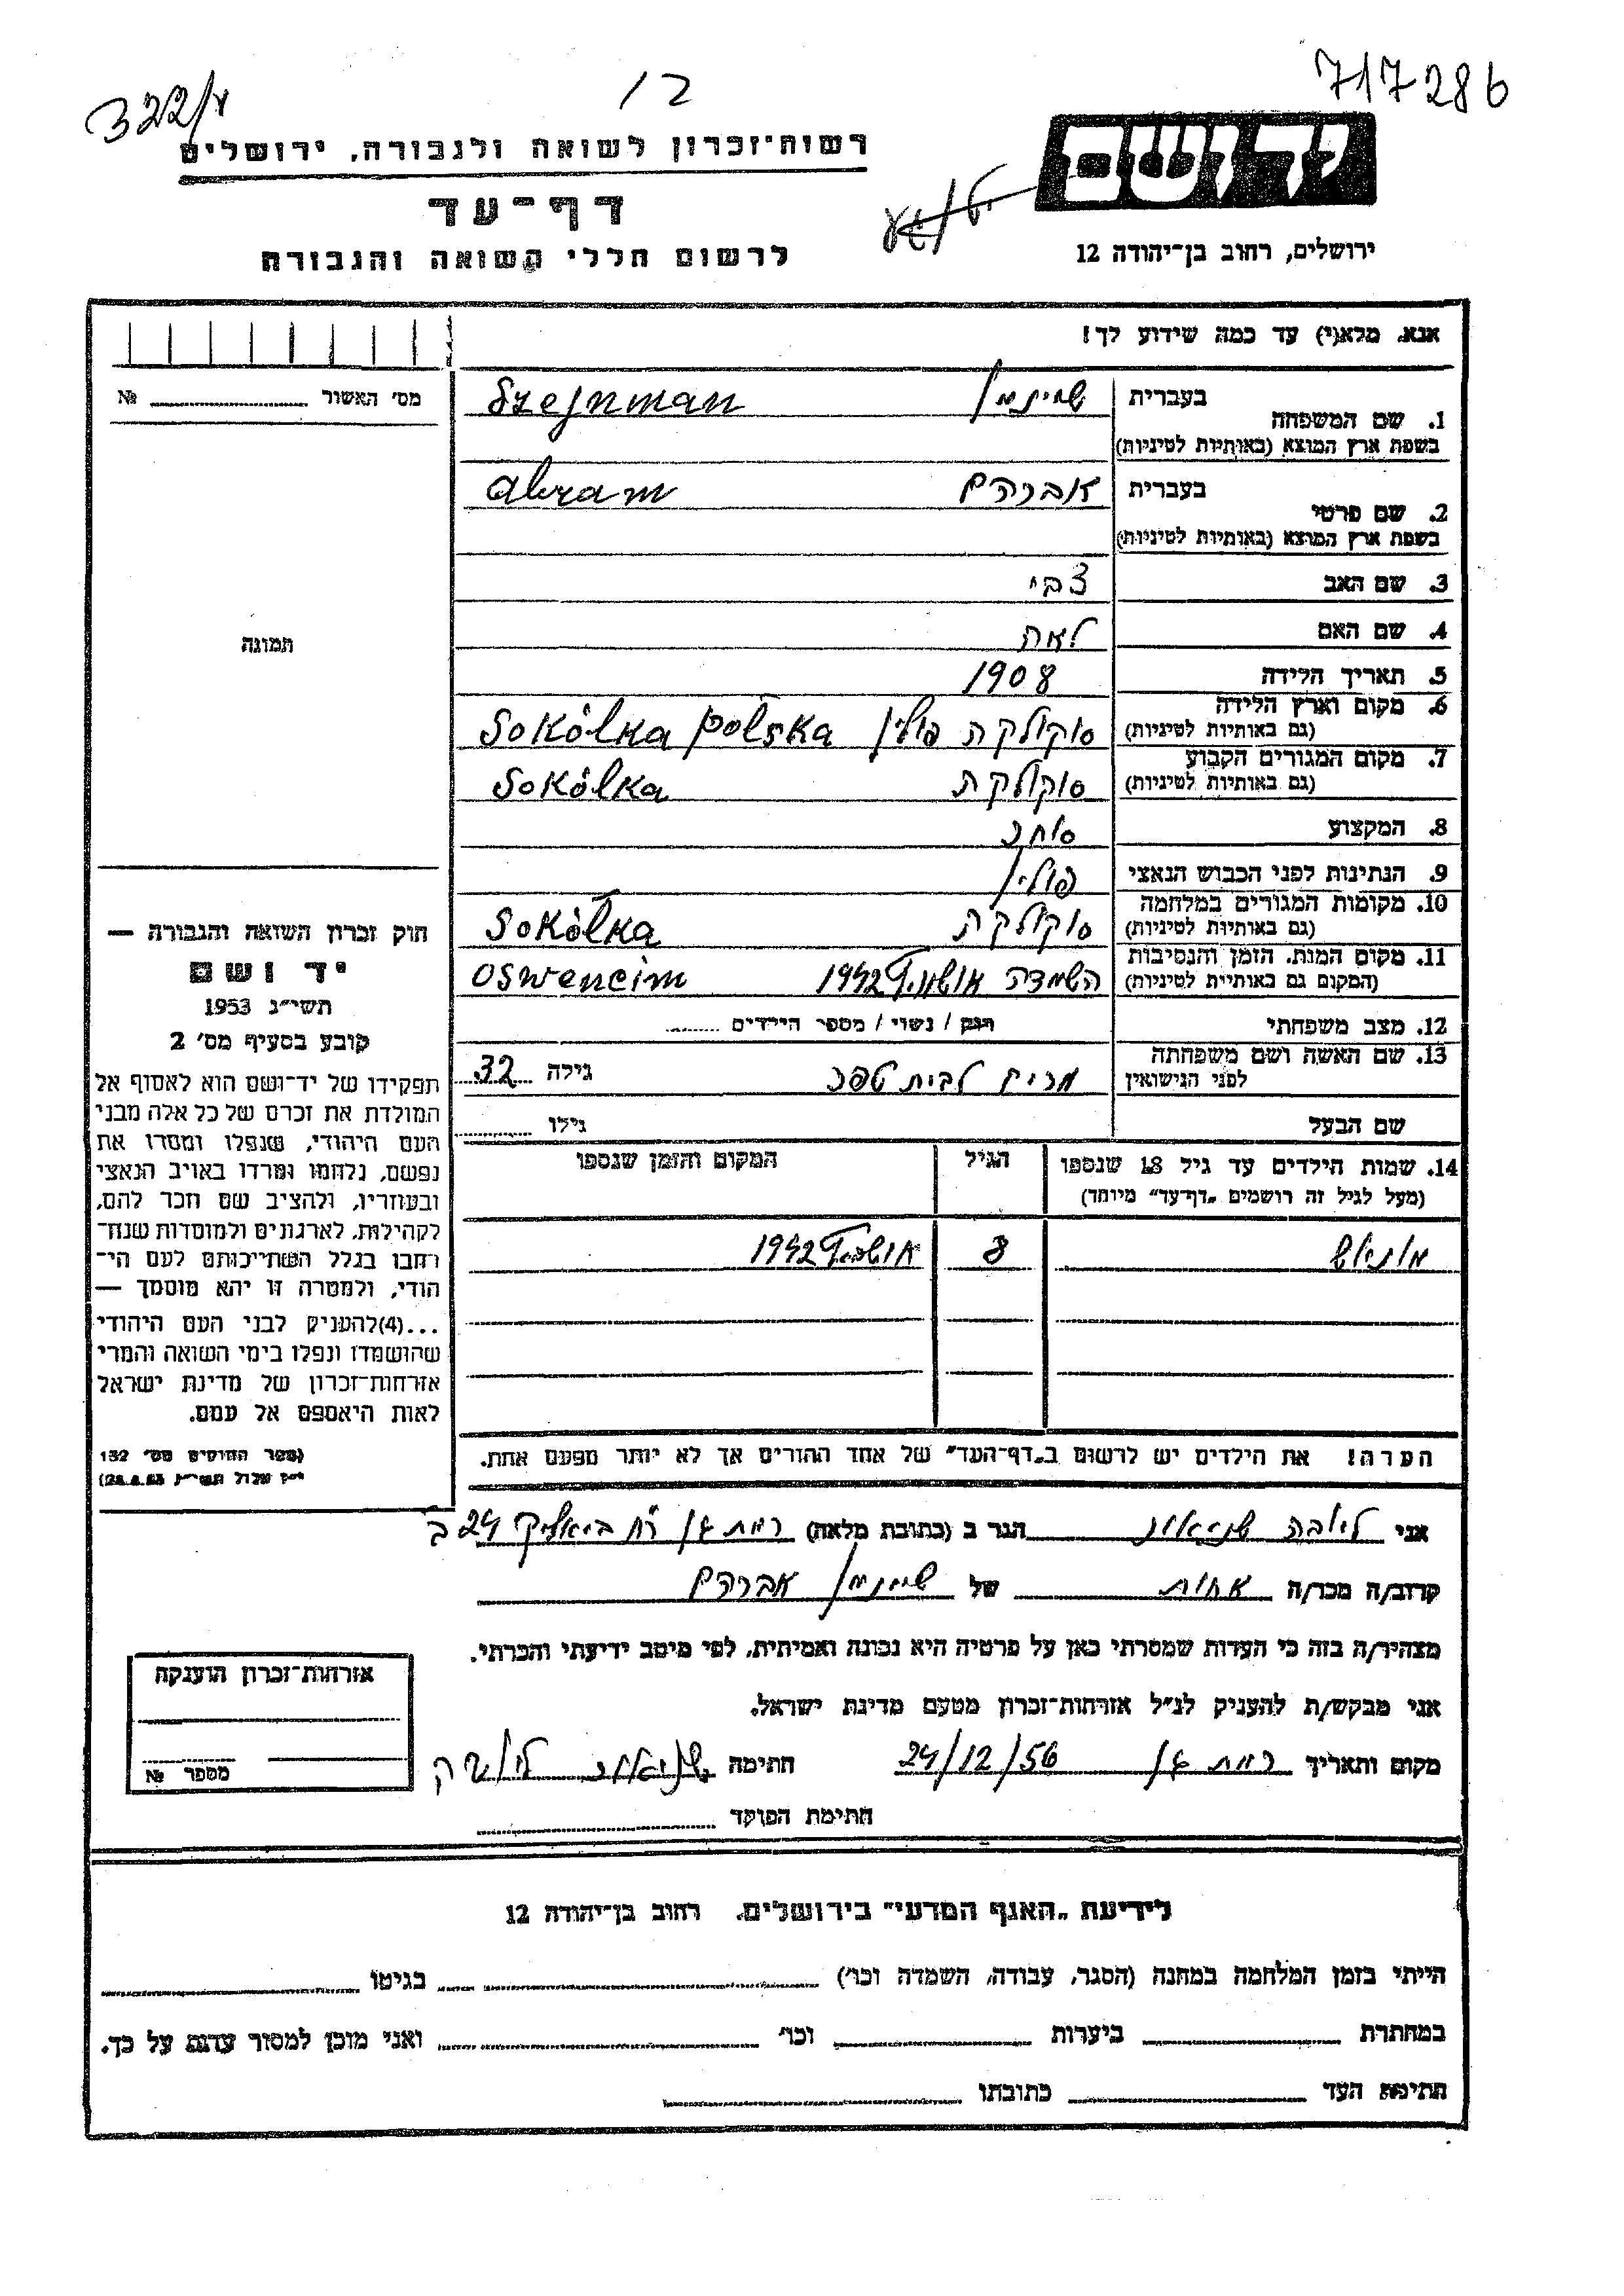 717286
12
322/ץ
רשות־זכרון לשואה ולגבורה, ירושלים
דף־עד
לרשום חללי השואה והגבורה
יד ושם
ירושלים, רחוב בן־יהודה 12
אנא, מלא(י) עד כמה שידוע לך!
מס' האשור № 
1. שם המשפחה בעברית שיינמן Szejnman
בשפת ארץ המוצא (באותיות לטיניות)
2. שם פרטי בעברית אברהם Abram
בשפת ארץ המוצא (באותיות לטיניות)
3. שם האב צבי
4. שם האם לאה
5. תאריך הלידה 1908
6. מקום וארץ הלידה (גם באותיות לטיניות) סוקולקה פולין Sokólka Polska
7. מקום המגורים הקבוע (גם באותיות לטיניות) סוקולקה Sokólka
8. המקצוע סוחר
9. הנתינות לפני הכבוש הנאצי פולין
10. מקומות המגורים במלחמה (גם באותיות לטיניות) סוקולקה Sokólka
11. מקום המות, הזמן והנסיבות (המקום גם באותיות לטיניות) השמדה 1942 Oswencim
12. מצב משפחתי רוק / נשוי / מספר הילדים
13. שם האשה ושם משפחתה לפני הנישואין מרים לבית טפר גילה 32
שם הבעל גילו
14. שמות הילדים עד גיל 18 שנספו הגיל המקום והזמן שנספו
(מעל לגיל זה רושמים „דף־עד" מיוחד)
8 1942
הערה! את הילדים יש לרשום ב„דף־העד" של אחד ההורים אך לא יותר מפעם אחת.
תמונה
חוק זכרון השואה והגבורה —
יד ושם
תשי"ג 1953
קובע בסעיף מס' 2
תפקידו של יד־ושם הוא לאסוף אל
המולדת את זכרם של כל אלה מבני
העם היהודי, שנפלו ומסרו את
נפשם, נלחמו ומרדו באויב הנאצי
ובעוזריו, ולהציב שם וזכר להם,
לקהילות, לארגונים ולמוסדות שנח־
רבו בגלל השתייכותם לעם הי־
הודי, ולמטרה זו יהא מוסמך —
...(4)להעניק לבני העם היהודי
שהושמדו ונפלו בימי השואה והמרי
אזרחות־זכרון של מדינת ישראל
לאות היאספם אל עמם.
(ספר החוקים מס' 132
י"ז אלול תשי"ג 28.8.53)
אני ליובה הגר ב (כתובת מלאה) רמת גן רח ביאליק 24 ב
קרוב/ה מכר/ה אחות של שיינמן אברהם
מצהיר/ה בזה כי העדות שמסרתי כאן על פרטיה היא נכונה ואמיתית, לפי מיטב ידיעתי והכרתי.
אני מבקש/ת להעניק לנ"ל אזרחות־זכרון מטעם מדינת ישראל.
מקום ותאריך רמת גן 24/12/56 חתימה
חתימת הפוקד
אזרחות־זכרון הוענקה
מספר №
לידיעת „האגף המדעי" בירושלים, רחוב בן־יהודה 12
הייתי בזמן המלחמה במחנה (הסגר, עבודה, השמדה וכו') בגיטו
במחתרת ביערות וכו' ואני מוכן למסור עדות על כך.
חתימת העד כתובתו